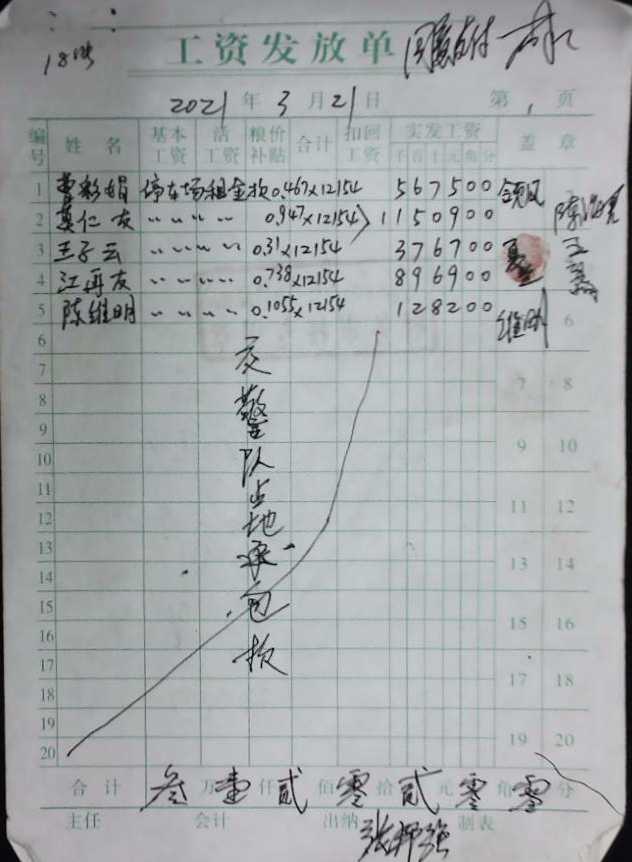 18号
工资发放单 同意支付
2021 年 3 月 21 日 第 1 页
编号 姓名 基本工资 活工资 粮价补贴 合计 扣回工资 实发工资 千百十元角分 盖章
1 曹彩娟 停车场租金款 0.467×12154 567500 领凤
2 莫仁友 〃 〃 〃 〃 0.947×12154 1150900
3 王子云 〃 〃 〃 〃 0.31×12154 376700 王
4 江再友 〃 〃 〃 〃 0.738×12154 896900
5 陈维明 〃 〃 〃 〃 0.1055×12154 128200 维明 6
6
7 7 8
8
9 9 10
10
11 11 12
12
13 13 14
14
15 15 16
16
17 17 18
18
19 19 20
20
交警队占地承包款
合计 叁万壹仟贰佰零拾贰元零角零分
主任 会计 出纳 制表